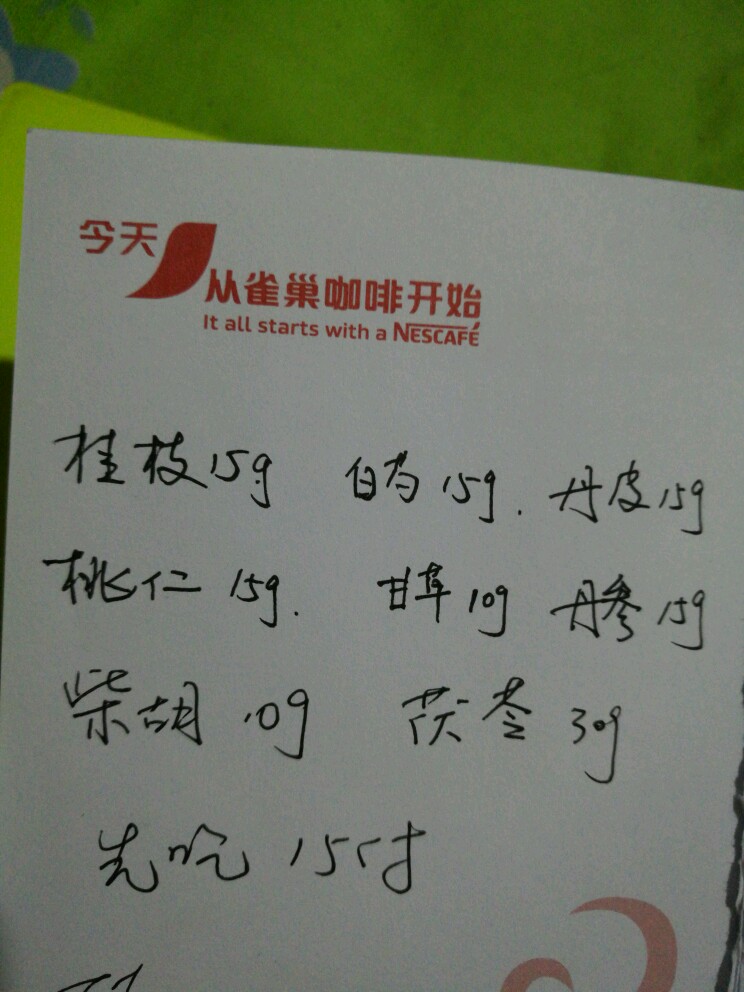 今天
从雀巢咖啡开始
It all starts with a NESCAFÉ
桂枝15g 白芍15g. 丹皮15g
桃仁 15g. 甘草10g 丹参15g
柴胡 10g 茯苓 30g
先吃 15付